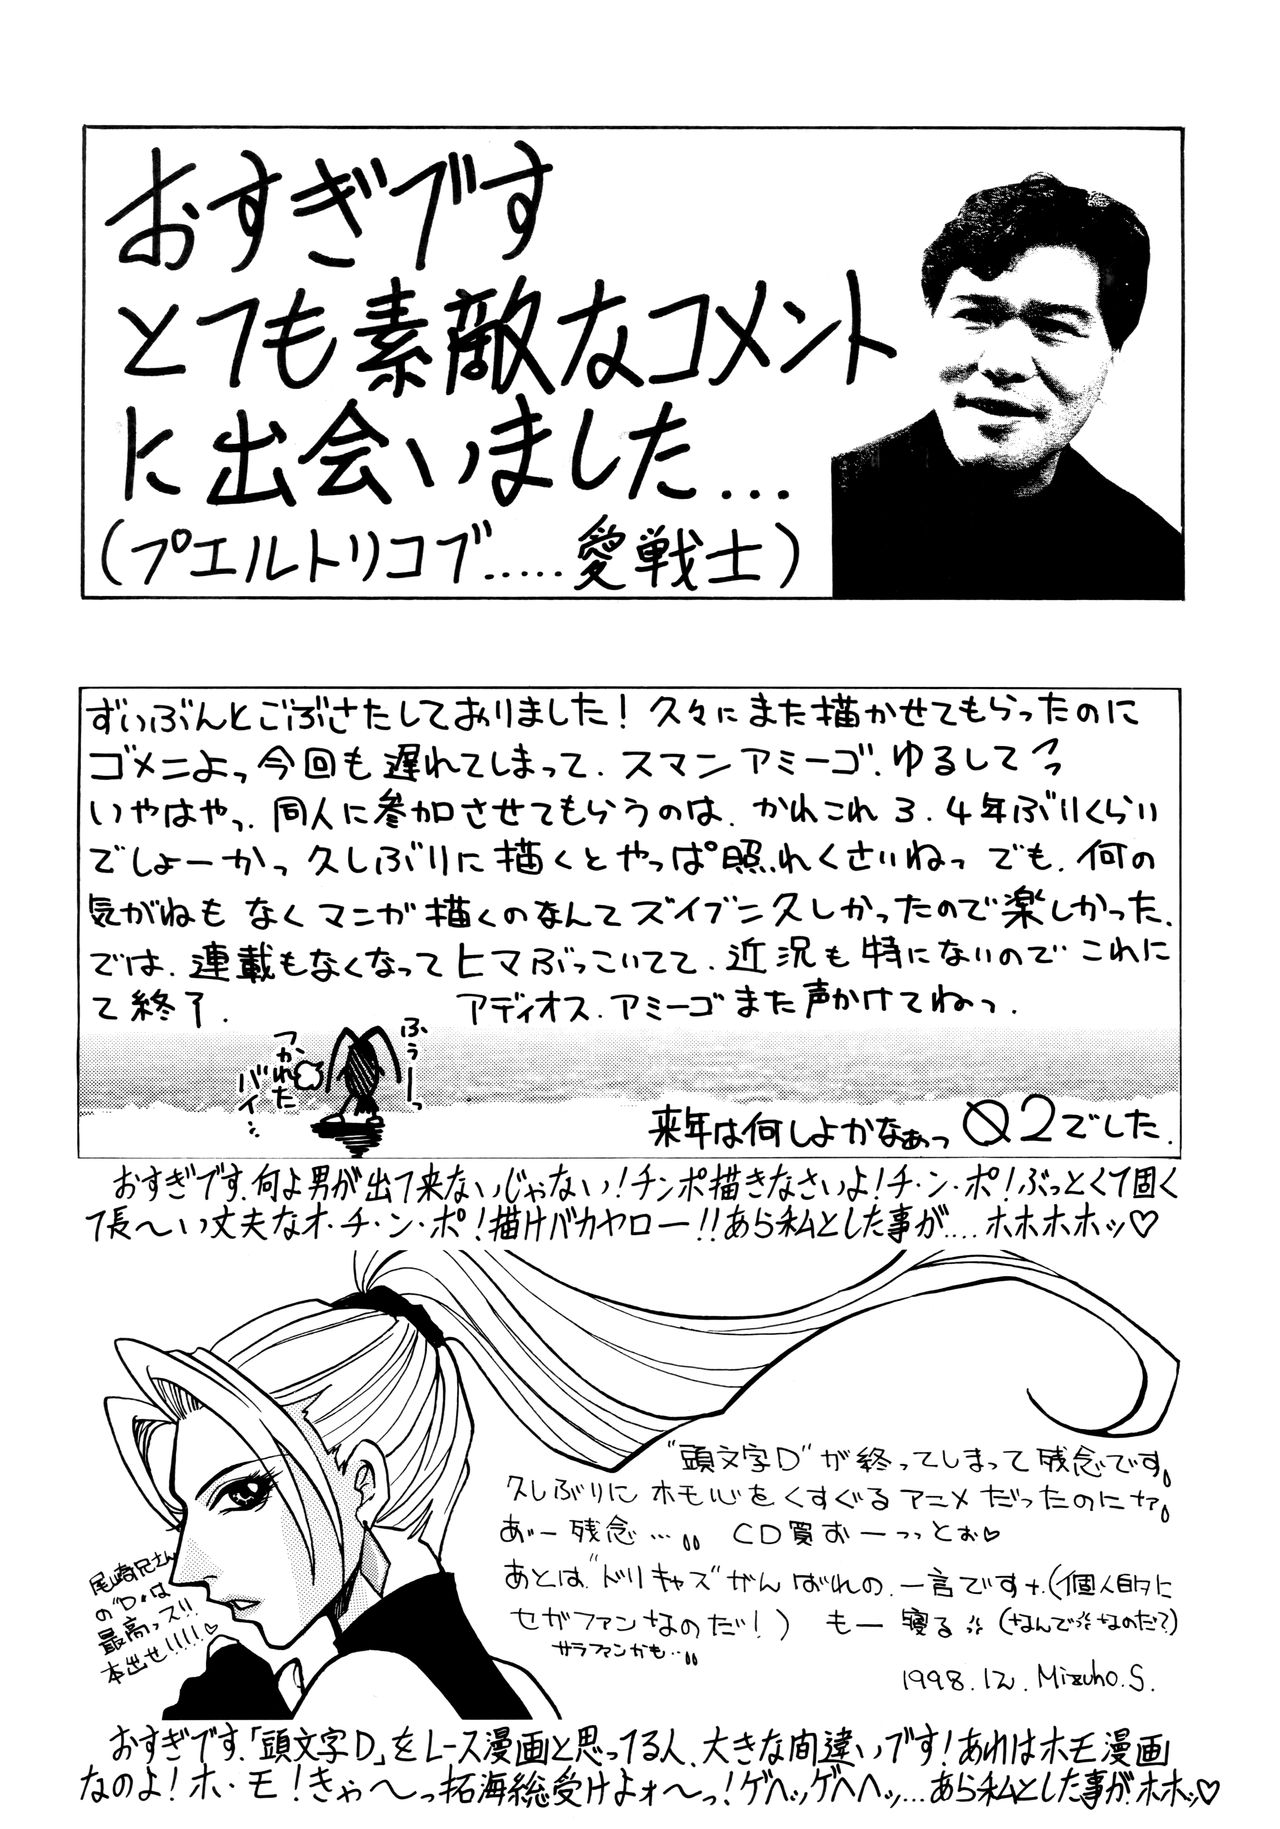 おすぎです
とても素敵なコメント
に出会いました...
(プエルトリコブ.....愛戦士)
ずいぶんとごぶさたしておりました！久々にまた描かせてもらったのに
ゴメニよっ今回も遅れてしまって、スマンアミーゴ、ゆるしてっ
いやはやっ、同人に参加させてもらうのは、かれこれ3、4年ぶりくらい
でしょーかっ久しぶりに描くとやっぱ照れくさいねっ でも、何の
気がねもなくマンガ描くのなんてズイブンニ久しかったので楽しかった、
では、連載もなくなってヒマぶっこいてて、近況も特にないのでこれに
て終了. アディオス、アミーゴまた声かけてねっ.
ふぅーっ
つかれた
バイ…
来年は何しよかなぁっ Q2でした.
おすぎです、何よ男が出て来ないじゃない！チンポ描きなさいよ！チ・ン・ポ！ぶっとくて固く
て長〜い丈夫なオ・チ・ン・ポ！描けバカヤロー!!あら私とした事が....ホホホホッ♡
"頭文字D"が終ってしまって残念です。
久しぶりにホモ心をくすぐるアニメだったのにナァ。
あー残念… CD買おーっっとぉ♡
あとは"ドリキャス"がんばれの、一言ですナ.(個人的に
セガファンなのだ！) もー寝る(なんでなのだ？)
サラファンかも…
尾崎兄さん
の"D"は
最高っス!!
本出せ!!!!♡
1998.12. Mizuho.S.
おすぎです、「頭文字D」をレース漫画と思ってる人、大きな間違いです！あれはホモ漫画
なのよ！ホ・モ！きゃ〜っ拓海総受けよォ〜っ！ゲヘッゲヘヘッ...あら私とした事がホホッ♡